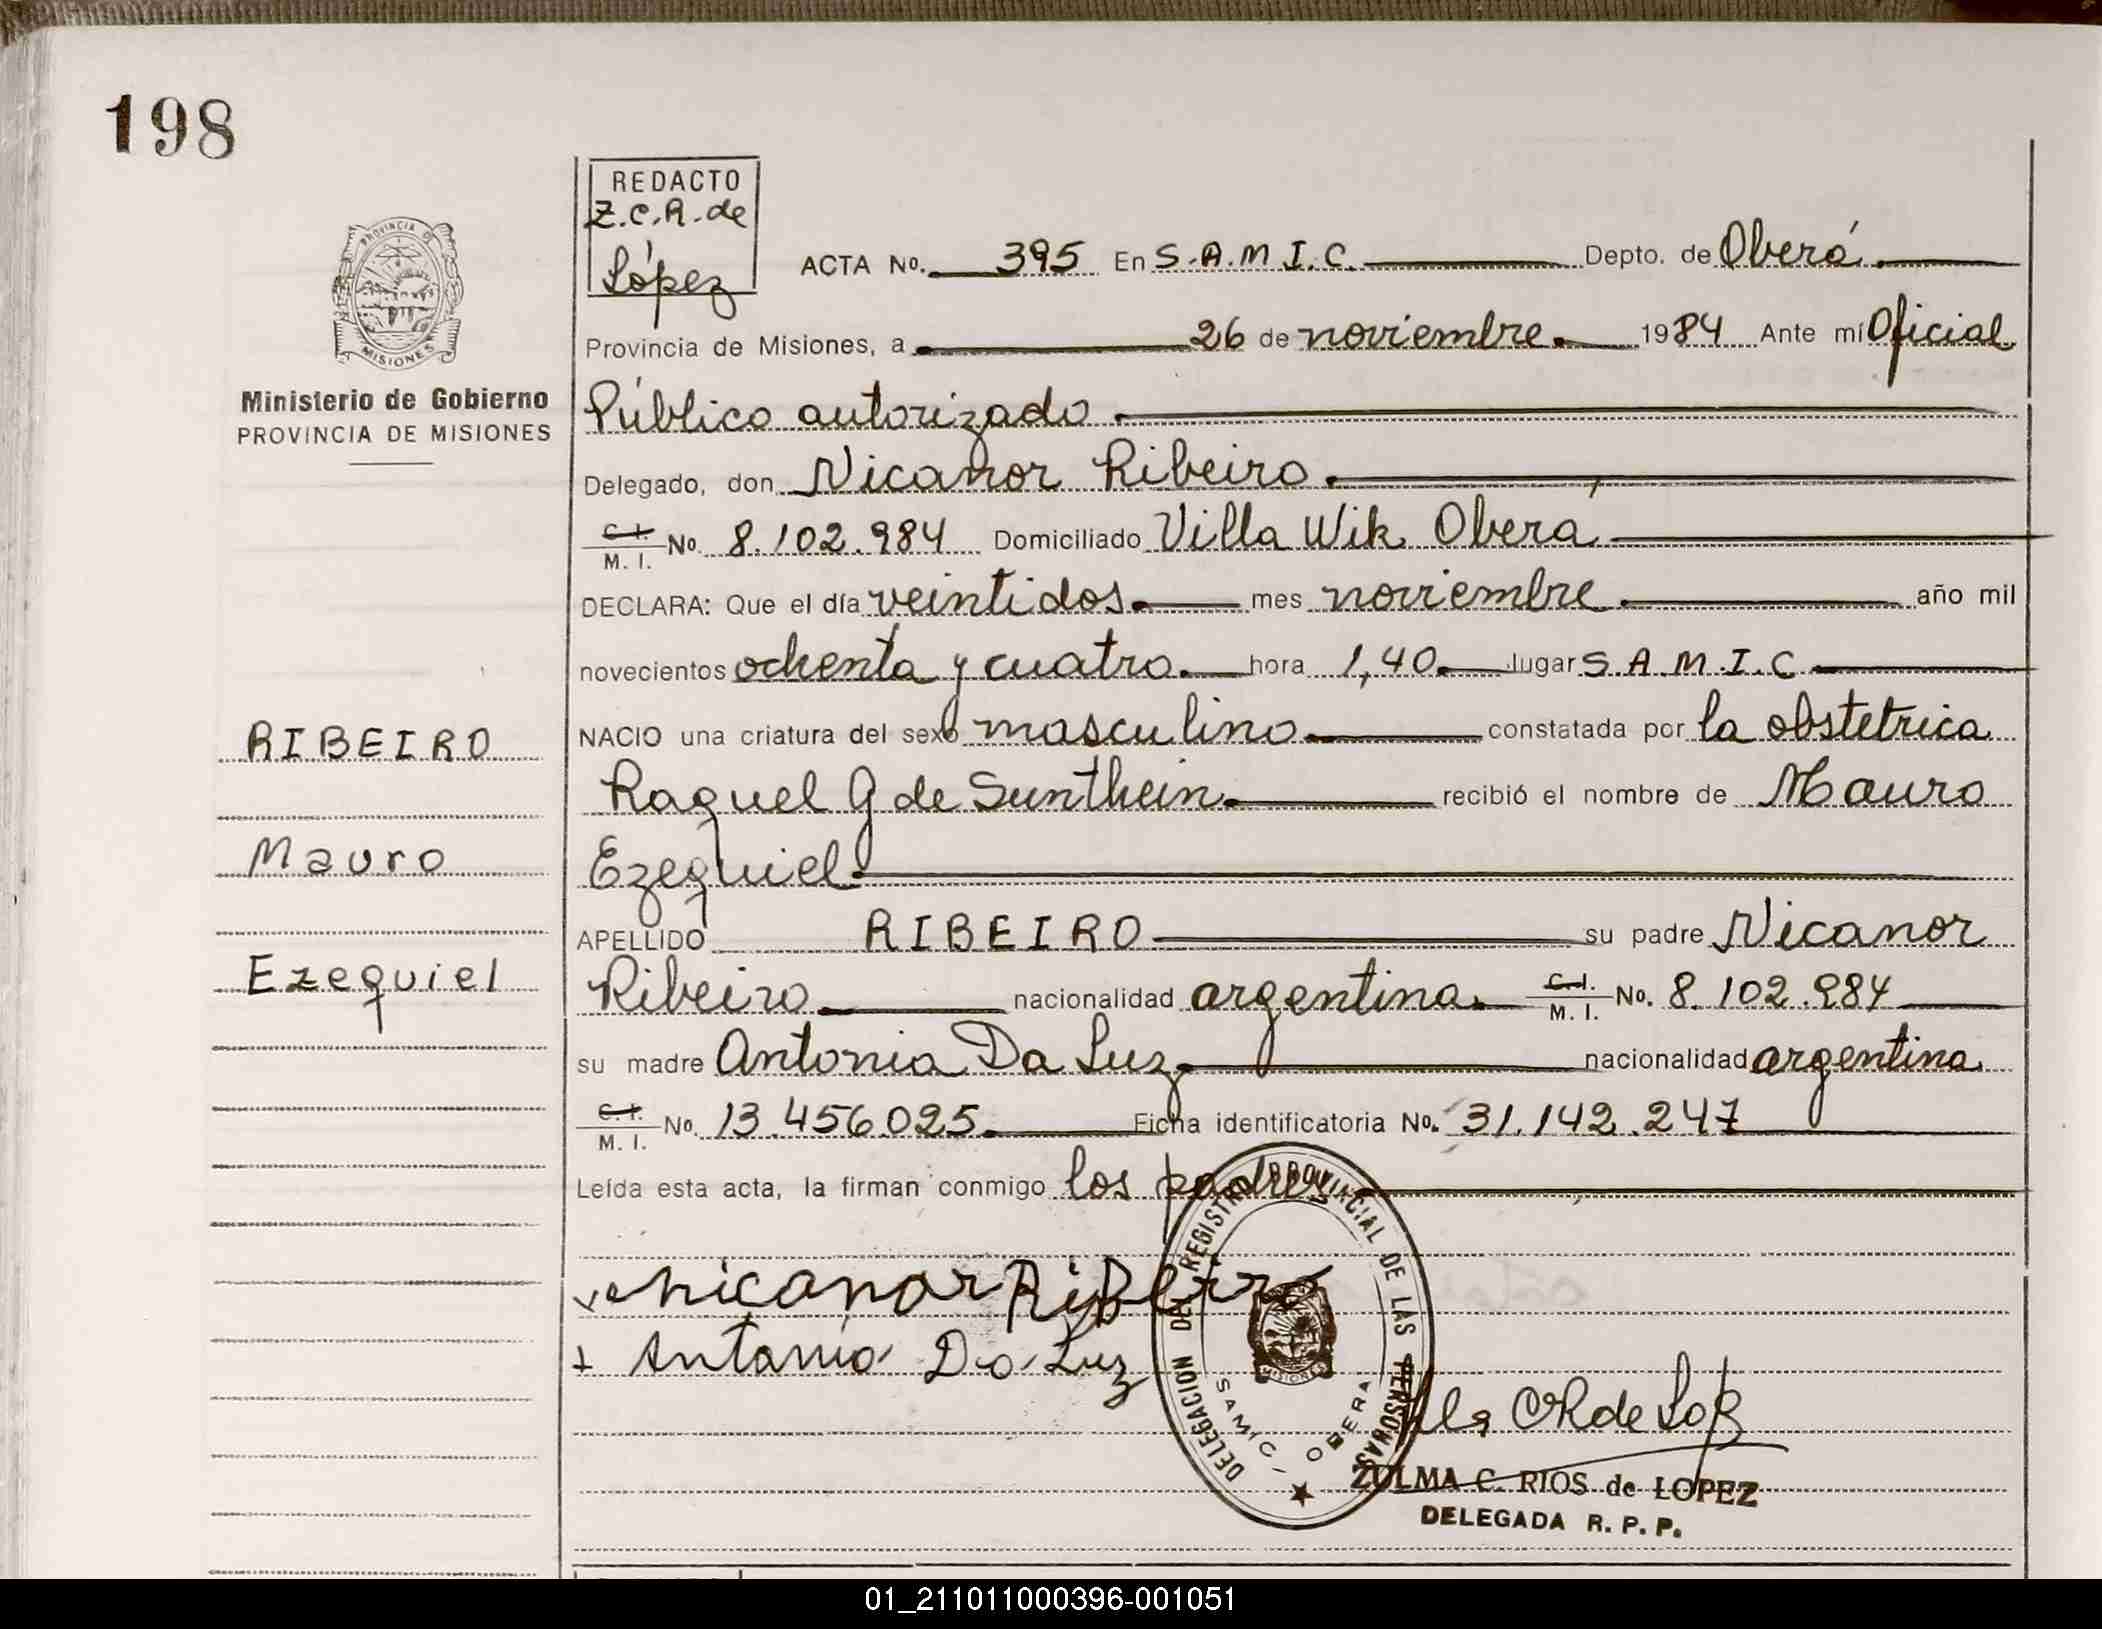 198
REDACTO
Z.C.R. de
López
ACTA No. 395 En S.A.M.I.C. Depto. de Oberá
PROVINCIA DE
MISIONES
Provincia de Misiones, a 26 de noviembre 1984 Ante mí Oficial
Ministerio de Gobierno
PROVINCIA DE MISIONES
Público autorizado
Delegado, don Nicanor Ribeiro
C.I.
M. I. No. 8.102.984 Domiciliado Villa Wik Oberá
DECLARA: Que el día veintidos mes noviembre año mil
novecientos ochenta y cuatro hora 1,40 lugar S.A.M.I.C
RIBEIRO
NACIO una criatura del sexo masculino constatada por la obstetrica
Raquel G de Sunthein recibió el nombre de Mauro
Mauro
Ezequiel
APELLIDO RIBEIRO su padre Nicanor
Ezequiel
Ribeiro nacionalidad argentina C.I.
M. I. No. 8.102.984
su madre Antonia Da Luz nacionalidad argentina
C.I.
M. I. No. 13.456.025 Ficha identificatoria No. 31.142.247
Leída esta acta, la firman conmigo los padres
nicanor RiBeiro
+ Antania Da Luz
DELEGACION DEL REGISTRO PROVINCIAL DE LAS PERSONAS
MISIONES
SAMIC - OBERA
ZULMA C. RIOS de LOPEZ
DELEGADA R. P. P.
01_211011000396-001051